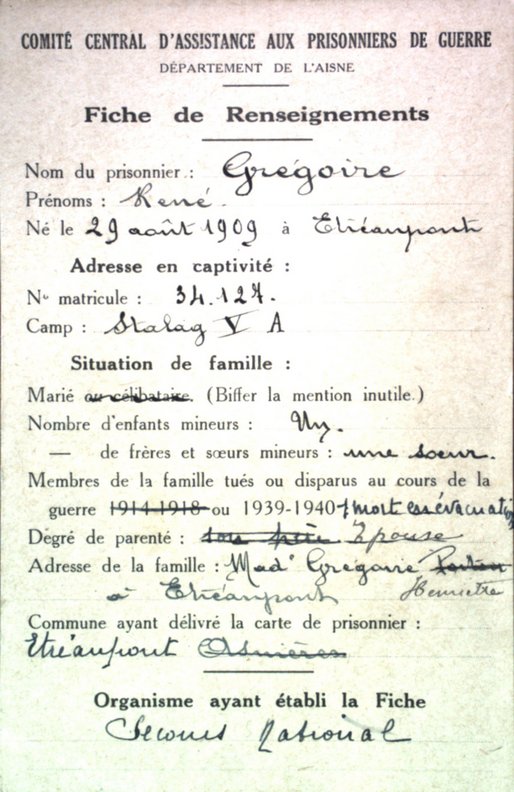 COMITÉ CENTRAL D'ASSISTANCE AUX PRISONNIERS DE GUERRE
DÉPARTEMENT DE L'AISNE
Fiche de Renseignements
Nom du prisonnier : Grégoire
Prénoms : René.
Né le 29 août 1909 à Etréaupont
Adresse en captivité :
No matricule : 34.127.
Camp : Stalag V A
Situation de famille :
Marié ou célibataire. (Biffer la mention inutile.)
Nombre d'enfants mineurs : Un.
— de frères et sœurs mineurs : une soeur.
Membres de la famille tués ou disparus au cours de la
guerre 1914-1918 ou 1939-1940 1 mort en évacuation
Degré de parenté : son père Epouse
Adresse de la famille : Made Grégoire
Henriette
à Etréaupont
Commune ayant délivré la carte de prisonnier :
Etréaupont Asnières
Organisme ayant établi la Fiche
Secours National